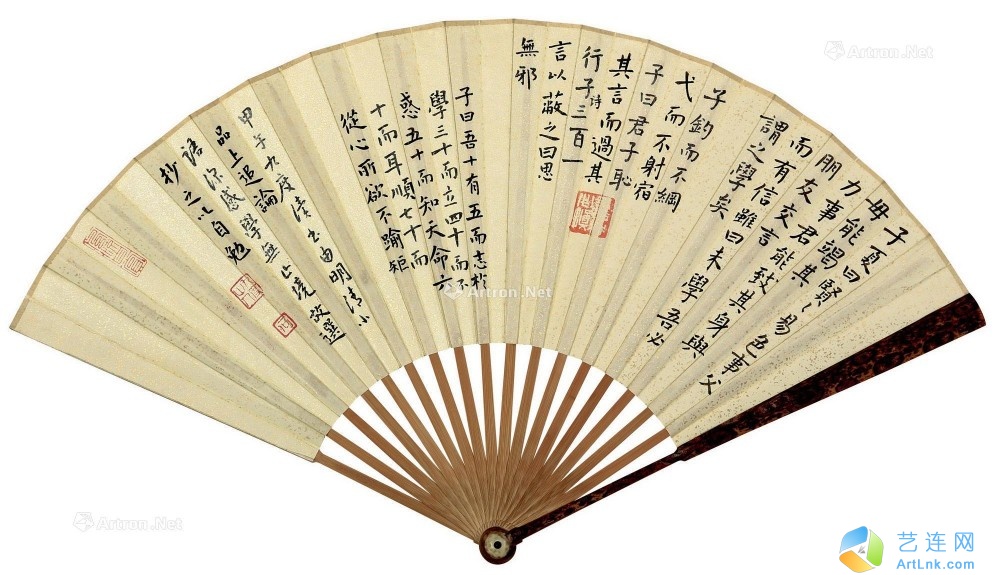 子夏曰賢〻易色事父
母能竭其
力事君能致其身與
朋友交言
而有信雖曰未學吾必
謂之學矣
子釣而不綱
弋而不射宿
子曰君子恥
其言而過其
行子詩三百一
言以蔽之曰思
無邪
子曰吾十有五而志於
學三十而立四十而不
惑五十而知天命六
十而耳順七十而
從心所欲不踰矩
甲午九度读书由明清小
品上追論
語深感學無止境故選
抄之以自勉
Artron.Net
Artron.Net
Artron.Net
Artron.Net
艺连网
ArtLnk.com